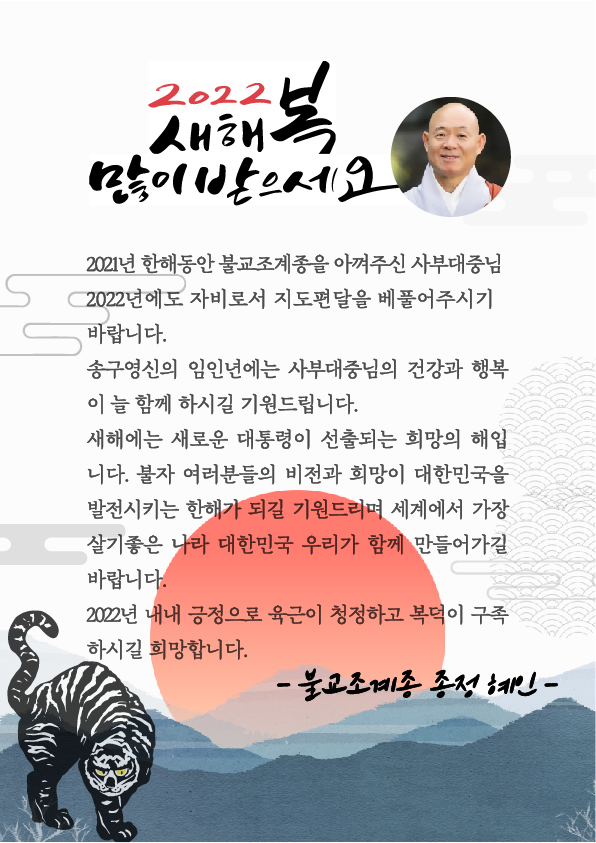 2022
새해 복
많이 받으세요
2021년 한해동안 불교조계종을 아껴주신 사부대중님
2022년에도 자비로서 지도편달을 베풀어주시기
바랍니다.
송구영신의 임인년에는 사부대중님의 건강과 행복
이 늘 함께 하시길 기원드립니다.
새해에는 새로운 대통령이 선출되는 희망의 해입
니다. 불자 여러분들의 비전과 희망이 대한민국을
발전시키는 한해가 되길 기원드리며 세계에서 가장
살기좋은 나라 대한민국 우리가 함께 만들어가길
바랍니다.
2022년 내내 긍정으로 육근이 청정하고 복덕이 구족
하시길 희망합니다.
- 불교조계종 종정 혜인 -